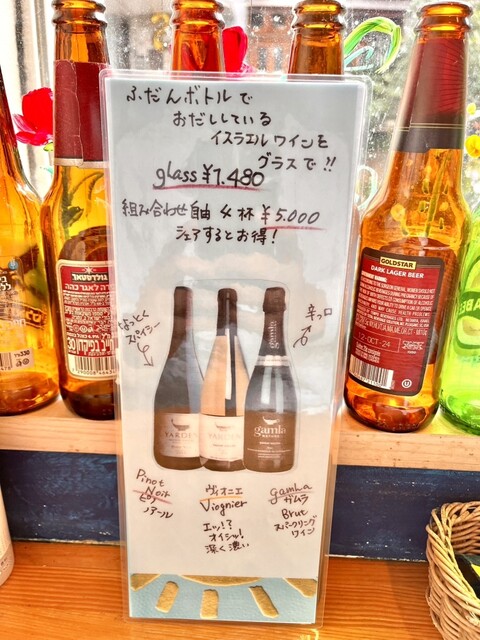 ふだんボトルで
おだししている
イスラエルワインを
グラスで!!
glass ¥1.480
組み合わせ自由 4杯 ¥5.000
シェアするとお得!
ちょっとく
スパイシー
辛っ口
YARDEN
YARDEN
gamla
gamla
Pinot
Noir
ピノ
ノアール
ヴィオニエ
Viognier
エッ!?
オイシッ!
深く濃い
gamha
ガムラ
Brut
スパークリング
ワイン
GOLDSTAR
DARK LAGER BEER
12-OCT-24
גולדסטאר
330